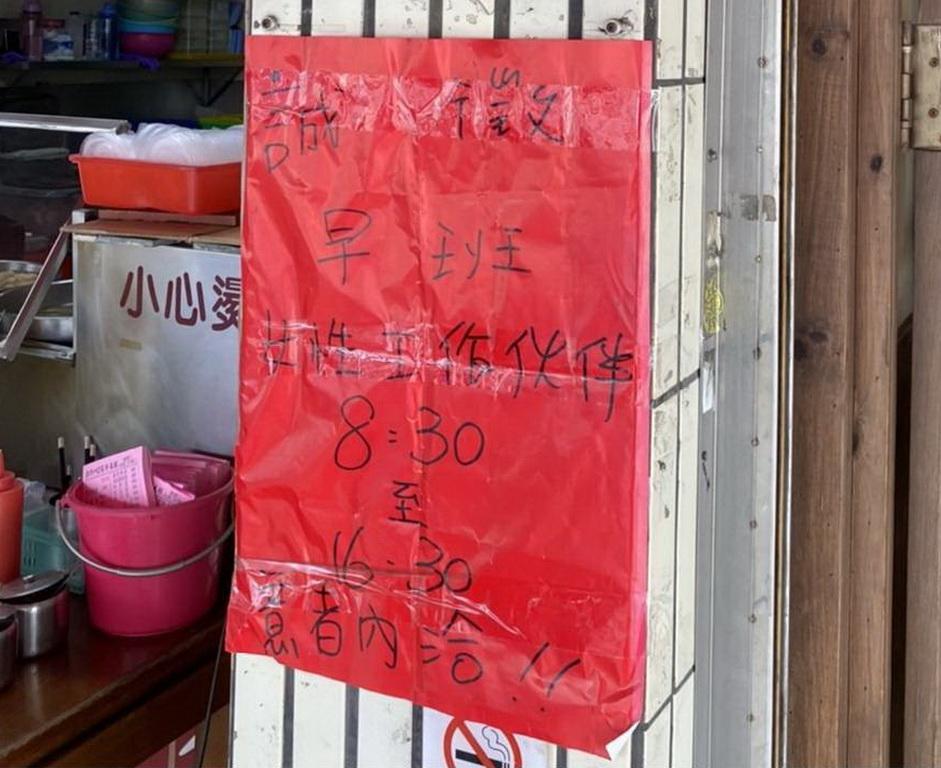 誠 徵
早 班
女性工作伙伴
8:30
至
16:30
意者內洽!!
小心燙